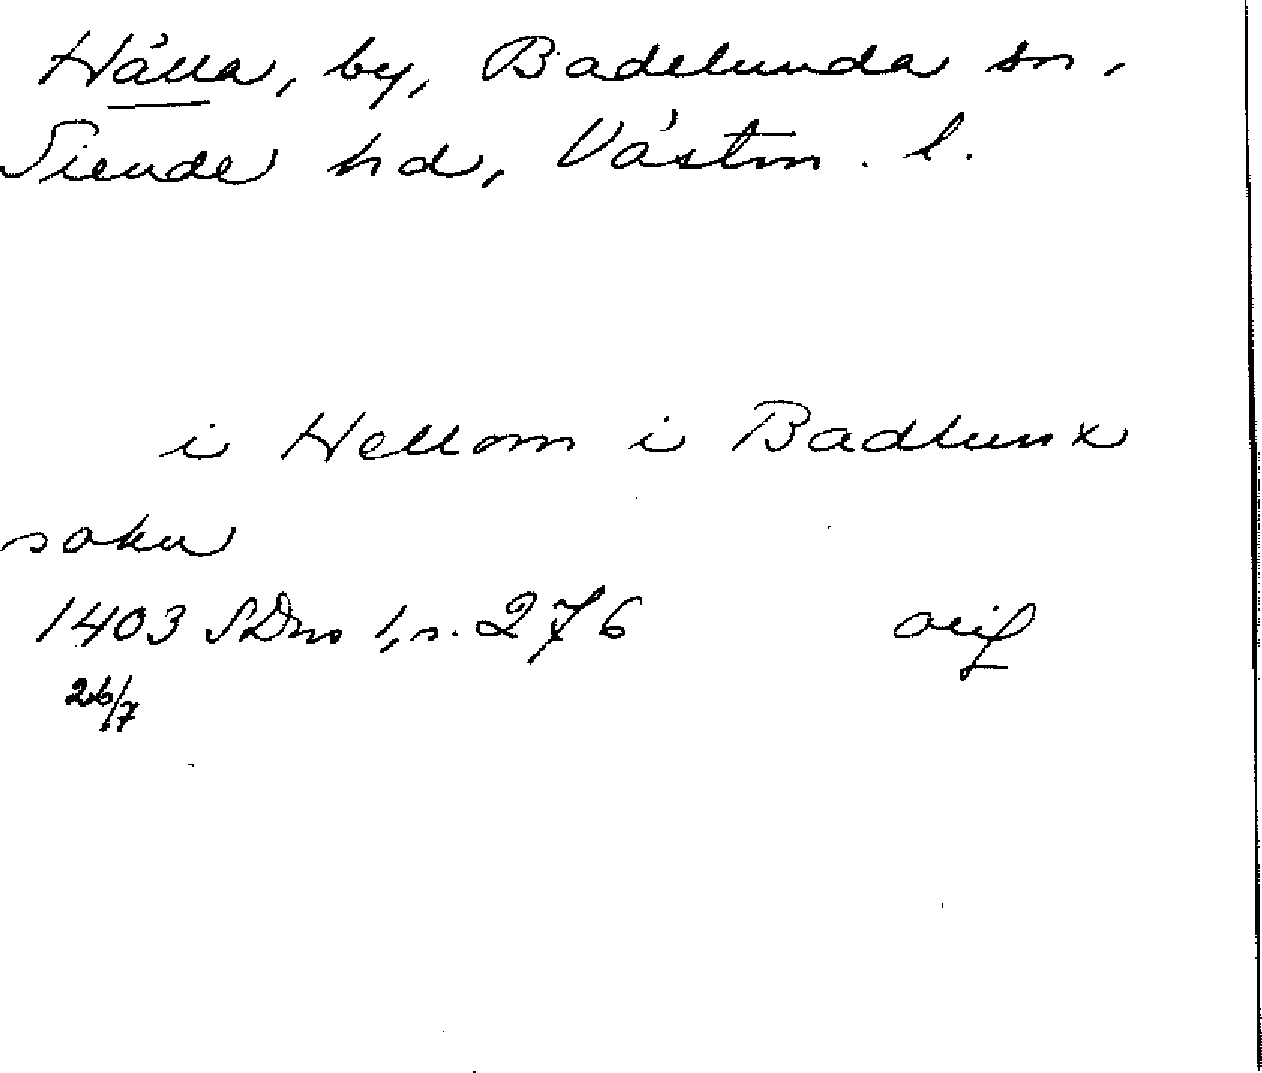 Hälla, by, Badelunda sn,
Siende hd, Västm. l.
i Hellom i Badlunx
sokn
1403 SDns 1, s. 276 orig
26/7